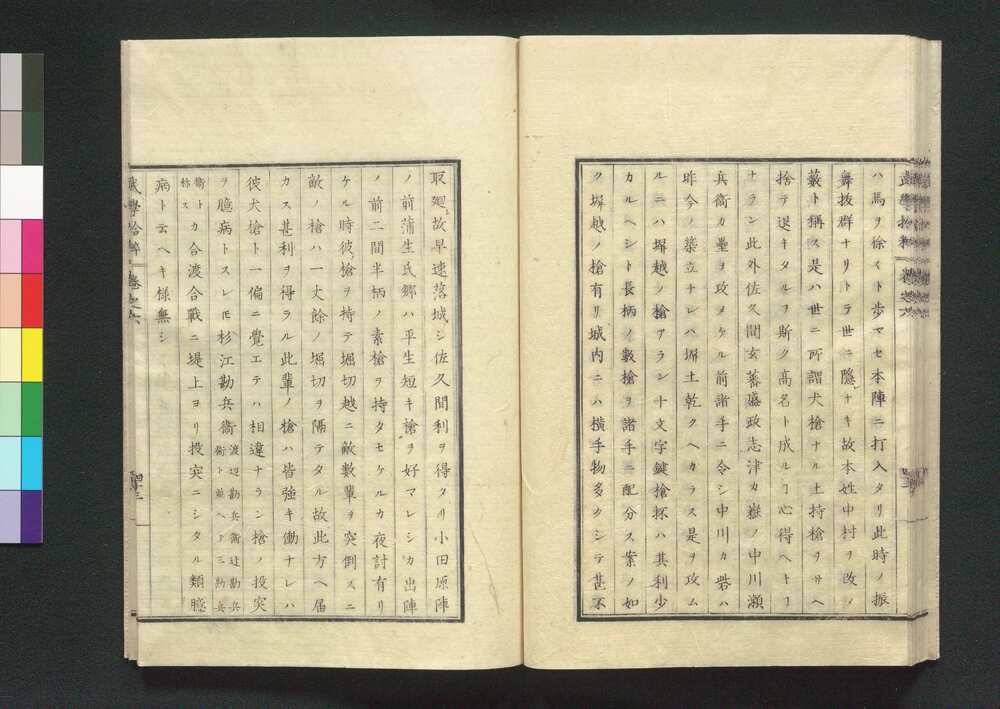 ハ馬ヲ徐々ト歩マセ本陣ニ打入タリ此時ノ振
舞抜群ナリトテ世ニ隠レナキ故本姓中村ヲ改メ
藪ト稱ス是ハ世ニ所謂犬槍ナル土持槍ヲサヘ
捨テ退キタルヲ斯ク高名ト成ルヿ心得ヘキヿ
ナラン此外佐久間玄蕃盛政志津カ嶽ノ中川瀬
兵衞カ壘ヲ攻メケル前諸手ニ令シ中川カ砦ハ
昨今ノ築立ナレハ塀土乾クヘカラス是ヲ攻ム
ルニハ塀越ノ槍アラン十文字鍵槍抔ハ其利少
カルヘシト長柄ノ數槍ヲ諸手ニ配分ス案ノ如
ク塀越ノ槍有リ城内ニハ横手物多クシテ甚不
取廻故早速落城シ佐久間利ヲ得タリ小田原陣
ノ前蒲生氏郷ハ平生短キ槍ヲ好マレシカ出陣
ノ前二間半柄ノ素槍ヲ持タセケルカ夜討有リ
ケル時彼槍ヲ持テ堀切越ニ敵數輩ヲ突倒スニ
敵ノ槍ハ一丈餘ノ堀切ヲ隔テタル故此方ヘ届
カス甚利ヲ得ラル此輩ノ槍ハ皆強キ働ナレハ
彼犬槍ト一偏ニ覺エテハ相違ナラン槍ノ投突
ヲ臆病トスレ𪜈杉江勘兵衞渡辺勘兵衞辻勘兵
衞ト並ヘテ三勘兵
衞ト
称ス
カ合渡合戰ニ堤上ヨリ投突ニシタル類臆
病ト云ヘキ様無シ
武學拾粹 卷之六
四十三